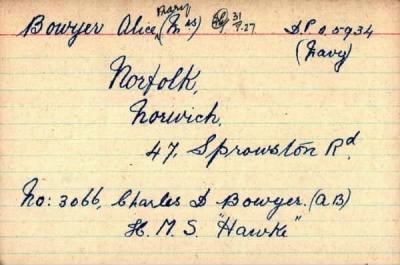 Bowyer Alice Mary (Mrs) 31/9.27 D.P. 0.5934
(Navy)
Norfolk,
Norwich,
47, Sprowston Rd.
No: 3066, Charles D Bowyer. (AB)
H. M. S. "Hawke"